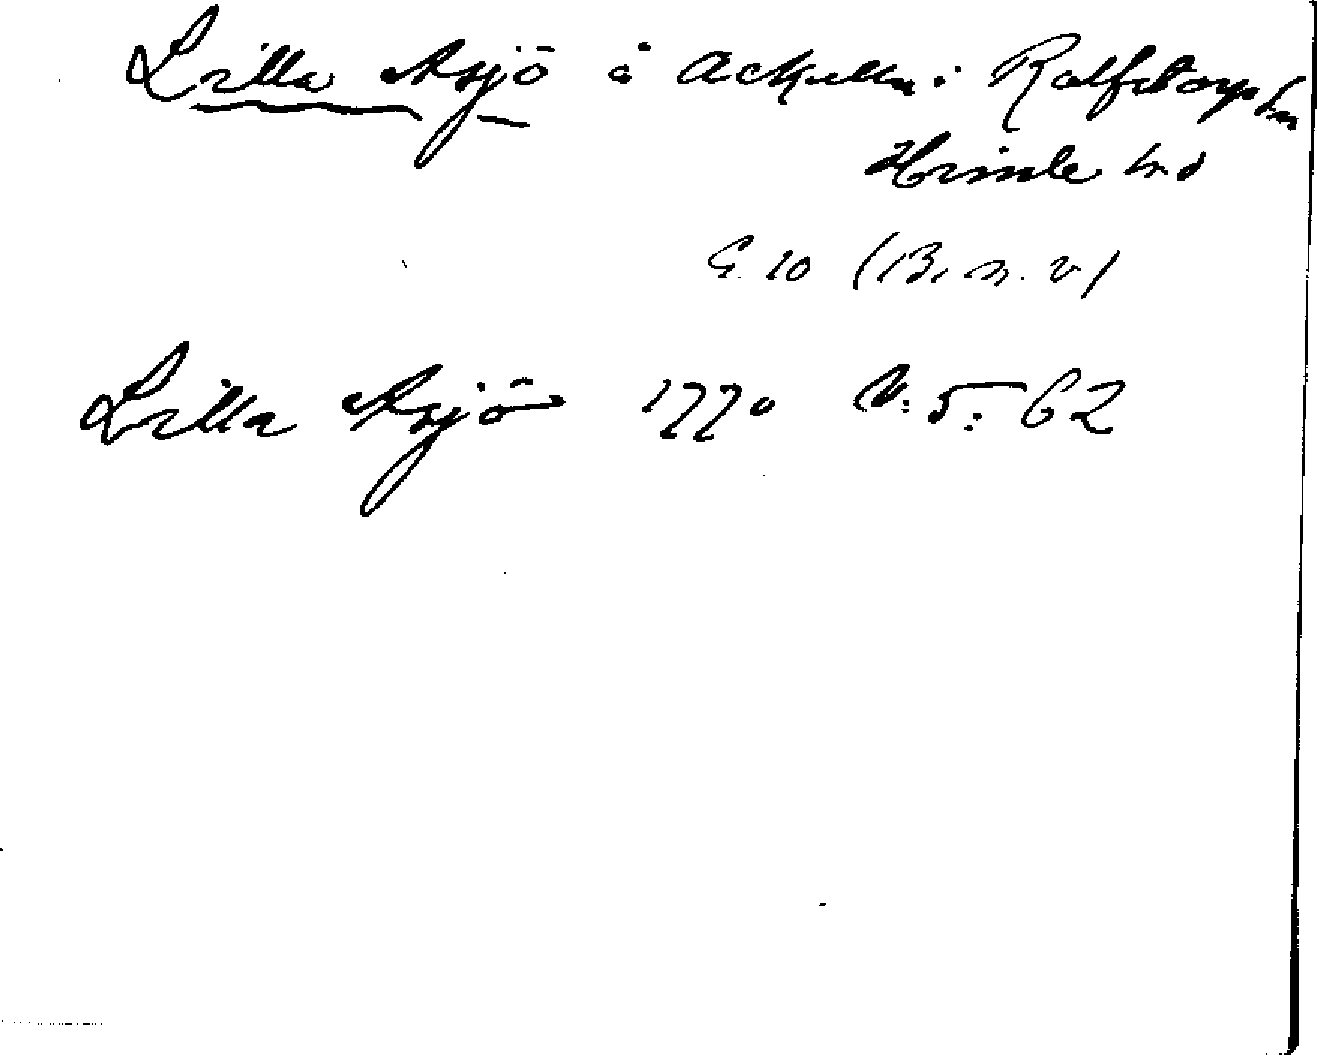 Lilla Asjö å Ackulla i Rolfstorps sn
Himle hd
G. 10 (B. n. v)
Lilla Asjö 1770 V: 5: 62